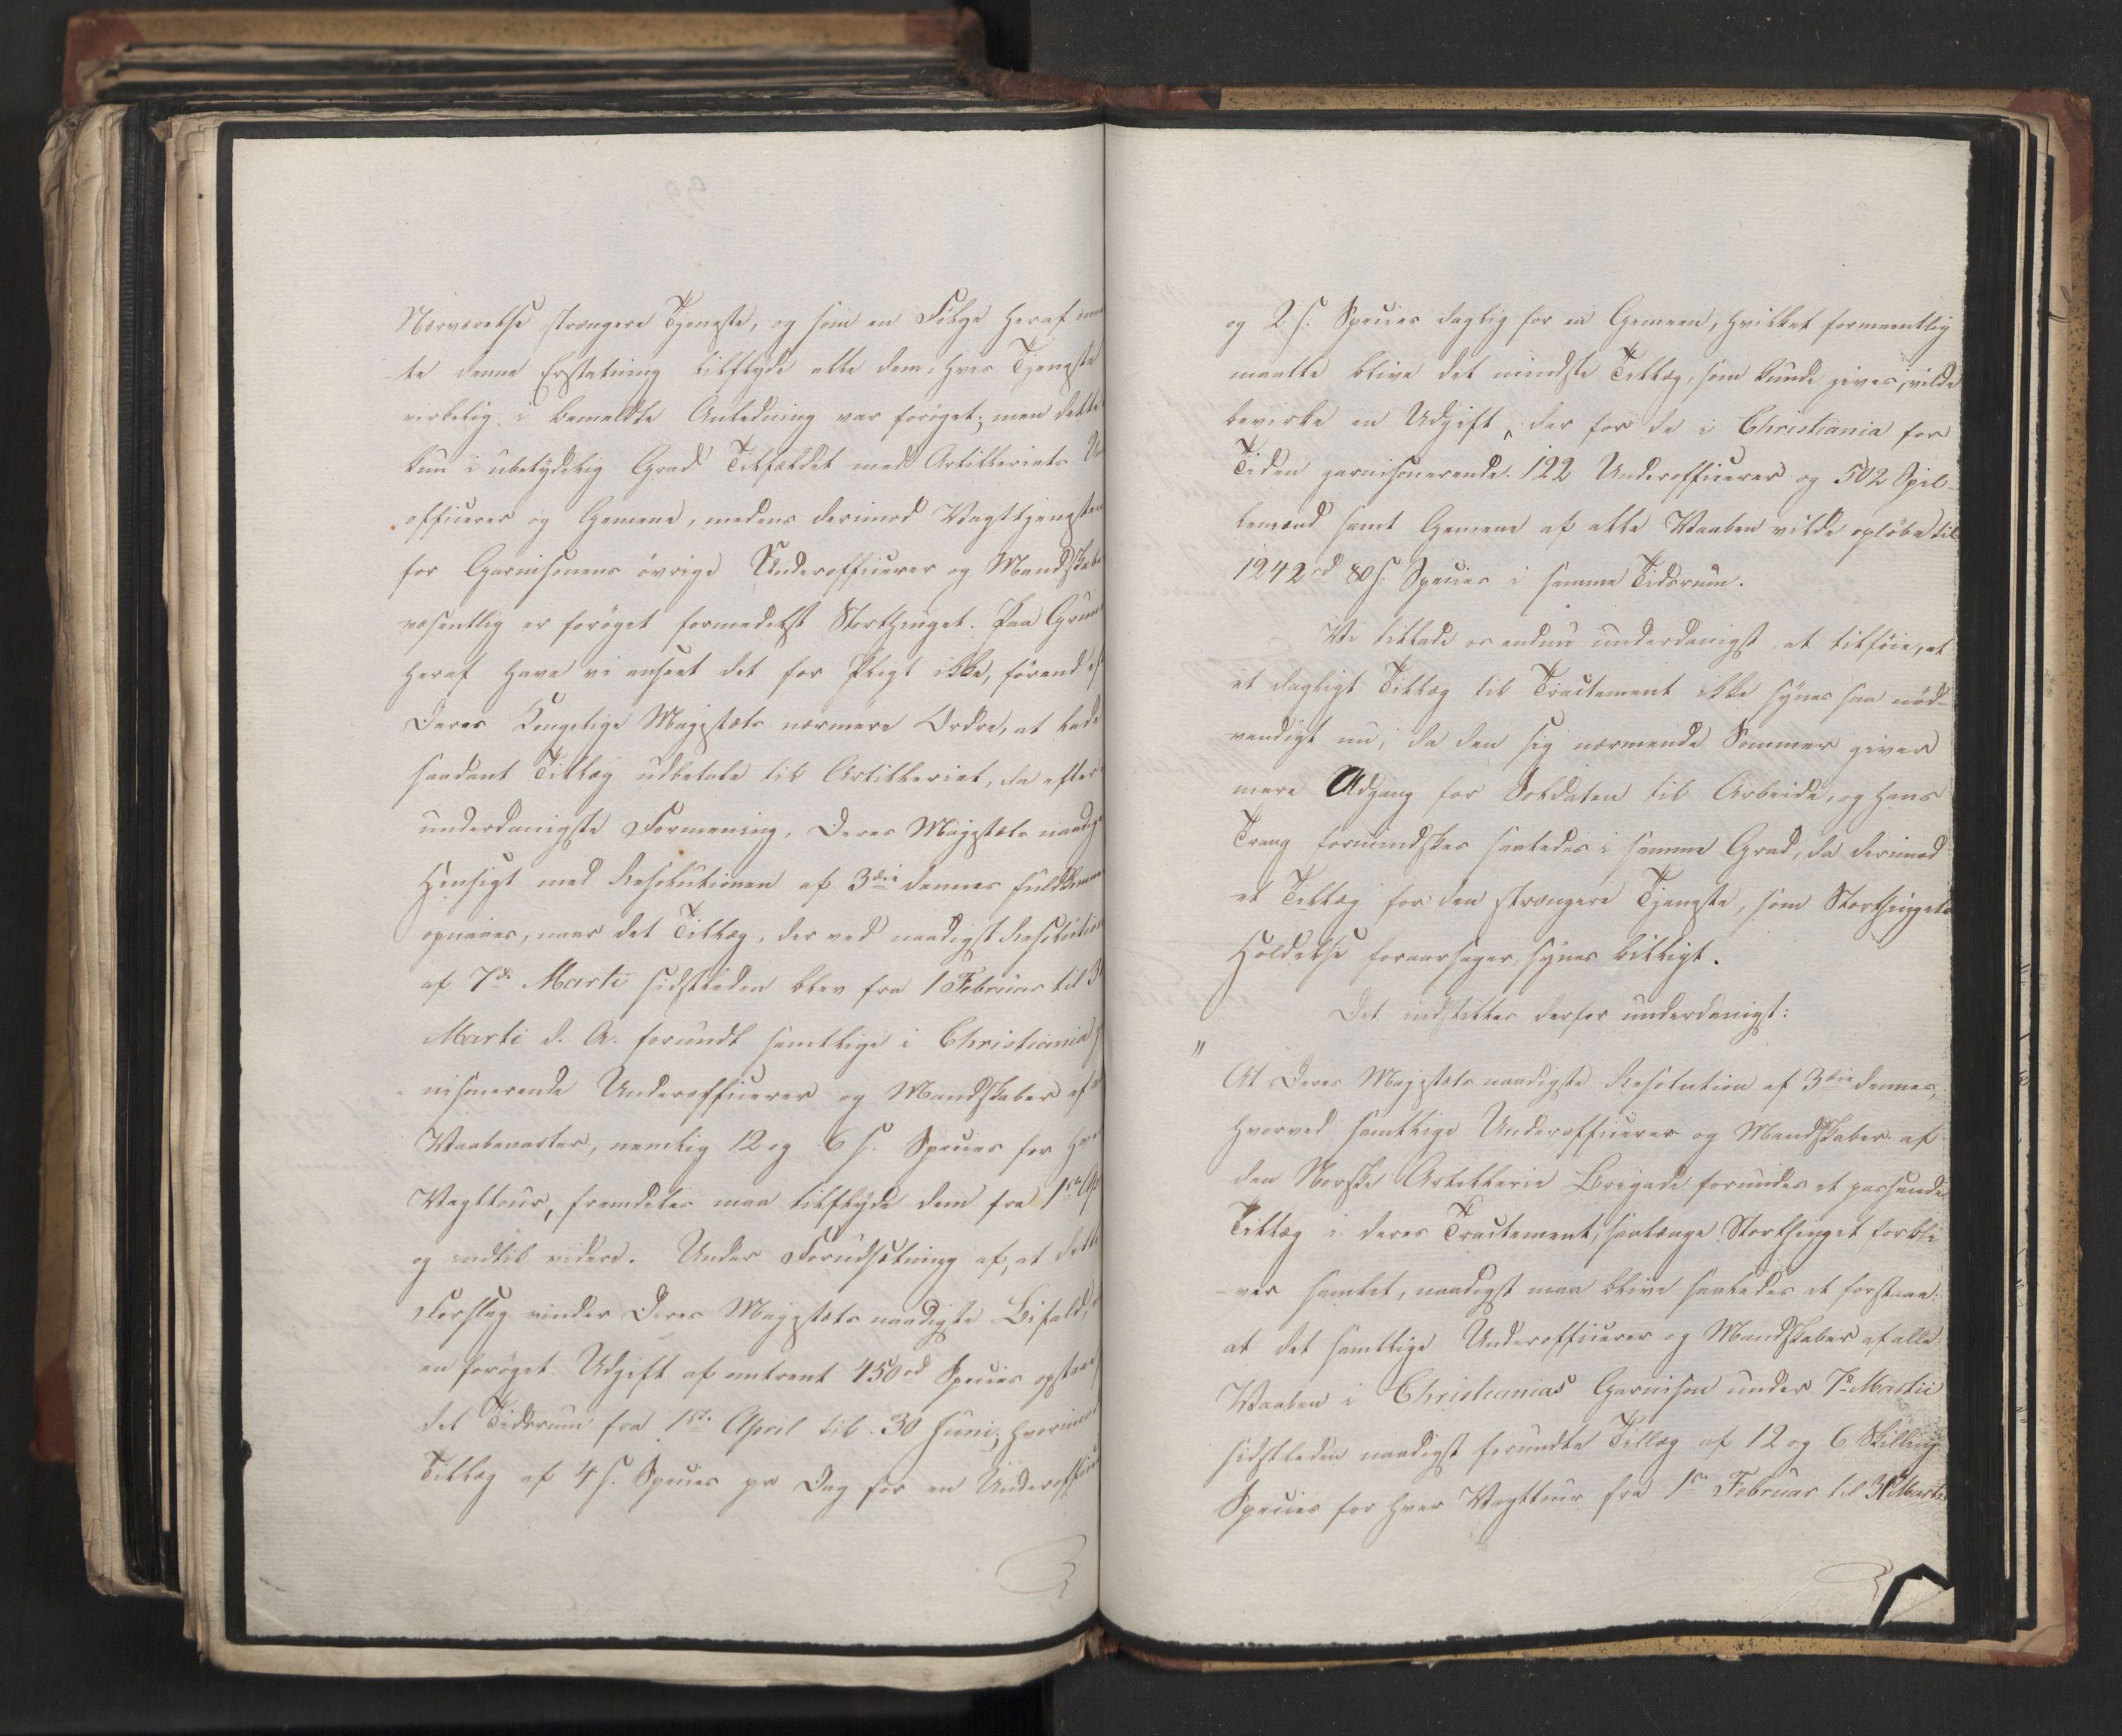 Nærværelse strængere Tjeneste, og som en Fölge heraf maa
te denne Erstatning tilflyde alle dem, hvis Tjeneste
virkelig i bemeldte Anledning var forøget; men dette
kun i ubetydelig Grad Tilfældet med Artilleriets Un
officerer og Gemene, medens derimod Vagttjenesten
for Garnisonens övrige Underofficerer og Mandskab
væsentlig er forøget formedelst Storthinget. Paa Grun
heraf have vi anseet det for Pligt ikke, förend
Deres Kongelige Majestæts nærmere Ordre, at lade
saadant Tillæg udbetale til Artilleriet, da efter
underdanigste Formening, Deres Majestæts naadig
Hensigt med Resolutionen af 3die dennes fuldkommen
opnaaes, naar det Tillæg, der ved naadigst Resolution
af 7de Marti sidstleden blev fra 1 Februar til 3
Marti d. A. forundt samtlige i Christiania
nisonerende Underofficerer og Mandskaber af
Vaabenarter, nemlig 12 og 6 s. Species for hver
Vagttour, fremdeles maa tilflyde dem fra 1ste Ap
og indtil videre. Under Forudsætning af, at dette
Forslag vinder Deres Majestæts naadigste Bifald,
en forøget Udgift af omtrent 450rd Species opstaae
det Tidsrum fra 1ste April til 30 Juni, hvorimod
Tillæg af 4 s. Species pr Dag for en Underofficer
og 2 s. Species daglig for en Gemeen, hvilket formeentlig
maatte blive det mindste Tillæg, som kunde gives, vilde
bevirke en Udgift, der for de i Christiania for
Tiden garnisonerende 122 Underofficerer og 502 Spil-
lemænd samt Gemene af alle Vaaben vilde opløbe til
1242rd 80 s. Species i samme Tidsrum.
Vi tillade os endnu underdanigst at tilföie, at
et dagligt Tillæg til Tractement ikke synes saa nöd-
vendigt nu, da den sig nærmende Sommer giver
mere Adgang for Soldaten til Arbeide, og hans
Trang formindskes saaledes i samme Grad, da derimod
et Tillæg for den strængere Tjeneste, som Storthingets
Holdelse foraarsager, synes billigt.
Det indstilles derfor underdanigst:
"
At Deres Majestæts naadigste Resolution af 3die dennes,
hvorved samtlige Underofficerer og Mandskaber af
den Norske Artillerie Brigade forundes et passende
Tillæg i deres Tractement, saalænge Storthinget forbli-
ver samlet, naadigst maa blive saaledes at forstaae:
at det samtlige Underofficerer og Mandskaber af alle
Vaaben i Christianias Garnison under 7de Martii
sidstleden naadigst forundte Tillæg af 12 og 6 Skilling
Species for hver Vagttour fra 1ste Februar til 31 Marti